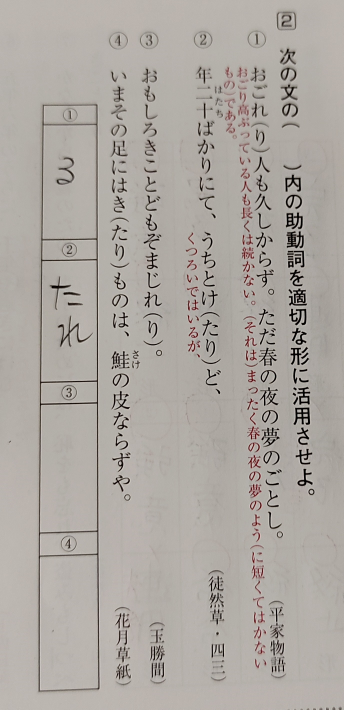 2 次の文の(　　)内の助動詞を適切な形に活用させよ。
① おごれ(り)人も久しからず。ただ春の夜の夢のごとし。(平家物語)
おごり高ぶっている人も長くは続かない。(それは)まったく春の夜の夢のよう(に短くてはかない
もの)である。
② 年二十ばかりにて、うちとけ(たり)ど、(徒然草・四三)
はたち
くつろいではいるが、
③ おもしろきことどもぞまじれ(り)。(玉勝間)
④ いまその足にはき(たり)ものは、鮭の皮ならずや。(花月草紙)
さけ
① る
② たれ
③
④